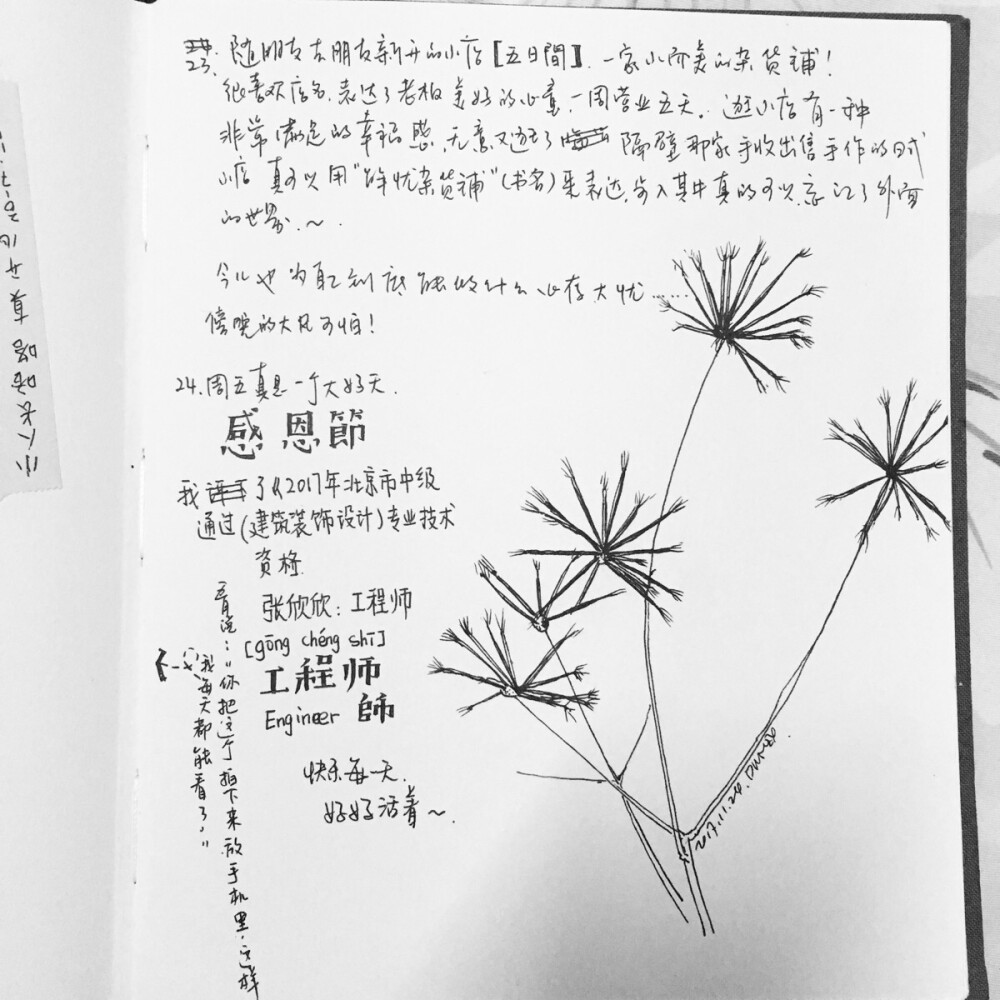 23. 随朋友去朋友新开的小店[五日間]. 一家小而美的杂货铺!
很喜欢店名,表达了老板美好的心意,一周营业五天. 逛小店有一种
非常满足的幸福感,无意又逛了隔壁那家手收出售手作的日式
小店 真可以用"解忧杂货铺"(书名)来表达,步入其中真的可以忘记了外面
的世界.~.
今儿也为自己到底能做什么心存大忧……
傍晚的大风可怕!
24.周五真是一个大好天.
感恩節
我 了 2017年北京市中级
通过(建筑装饰设计)专业技术
资格.
张欣欣:工程师
[gōng chéng shī]
工程师
Engineer 師
快乐每一天.
好好活着~.
说:"你把这个拍下来放手机里.这样
我每天都能看了."
2017.11.24.